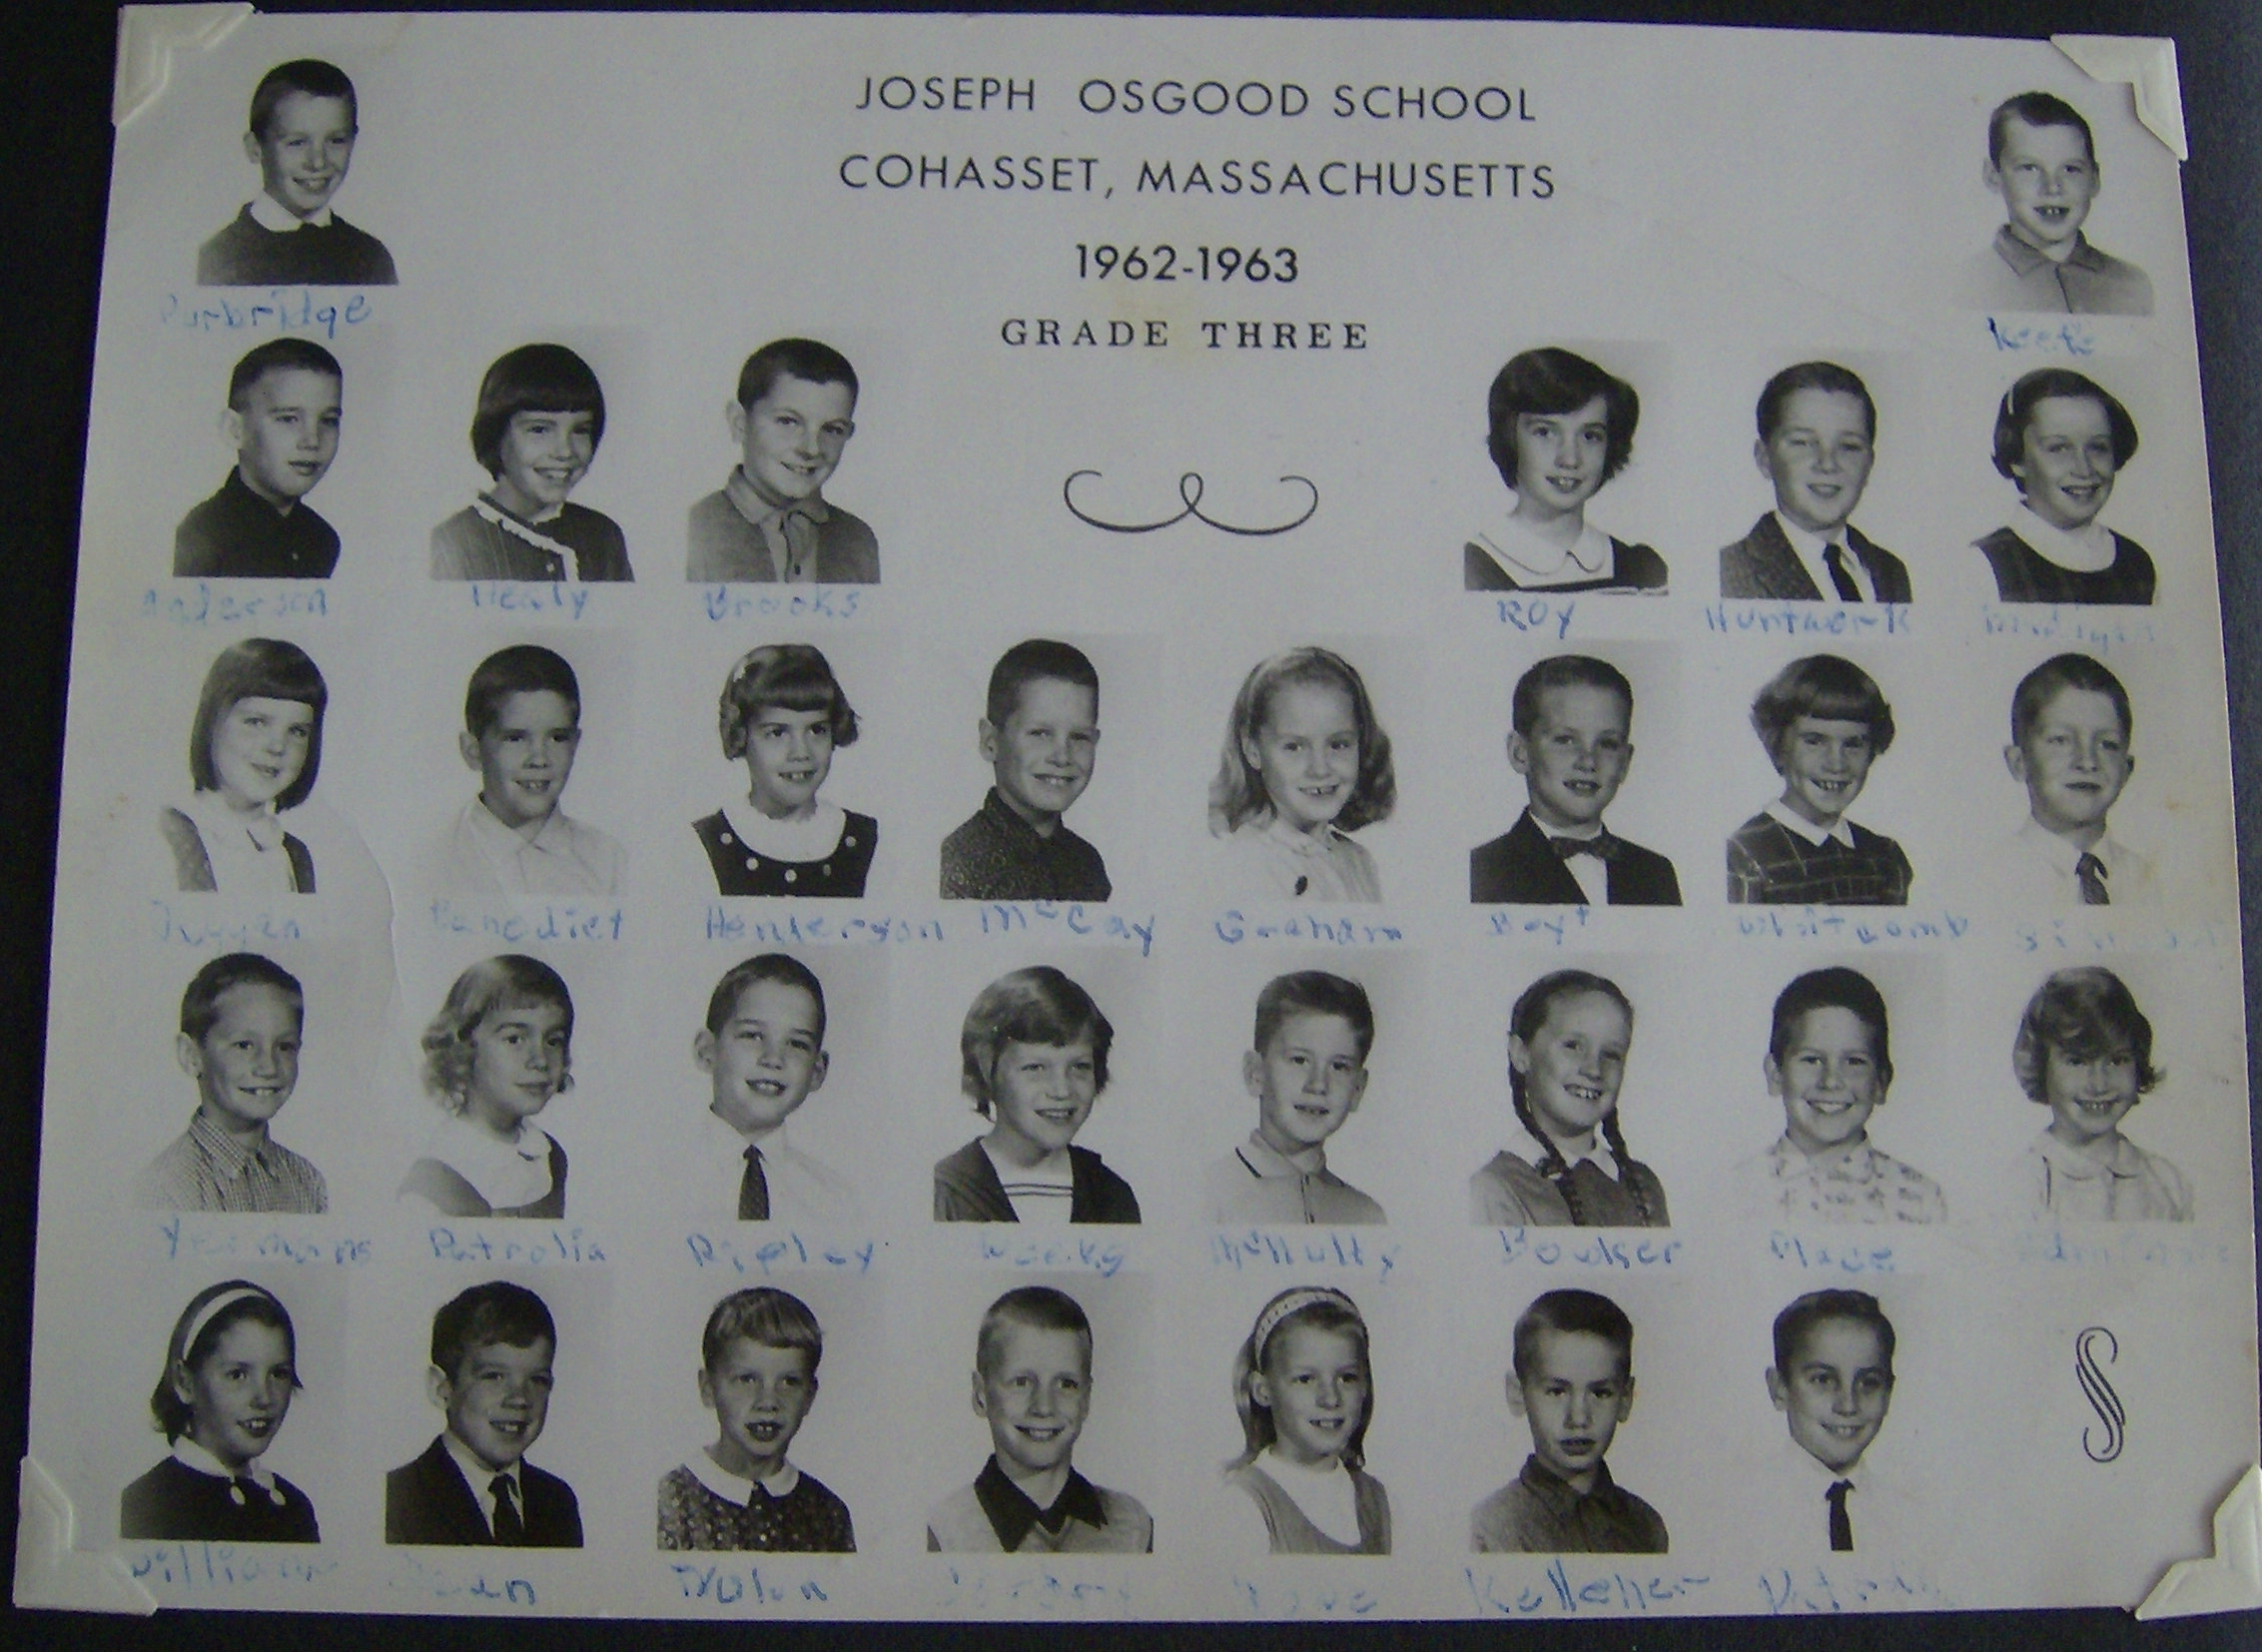 JOSEPH OSGOOD SCHOOL
COHASSET, MASSACHUSETTS
1962-1963
GRADE THREE
Burbridge Keefe
Anderson Healy Brooks Roy Huntwork Madigan
Duggan Benedict Henderson McCay Graham Hoyt Whitcomb
Yeomans Patrolia Ripley Weeks McNulty Bowser Place
William Nolan Kelleher